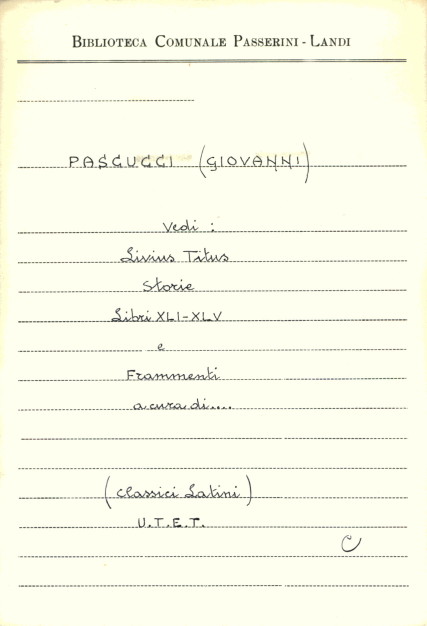 BIBLIOTECA COMUNALE PASSERINI - LANDI
PASCUCCI (GIOVANNI)
Vedi :
Livius Titus
Storie
Libri XLI-XLV
e
Frammenti
a cura di....
(Classici Latini)
U.T.E.T.
C